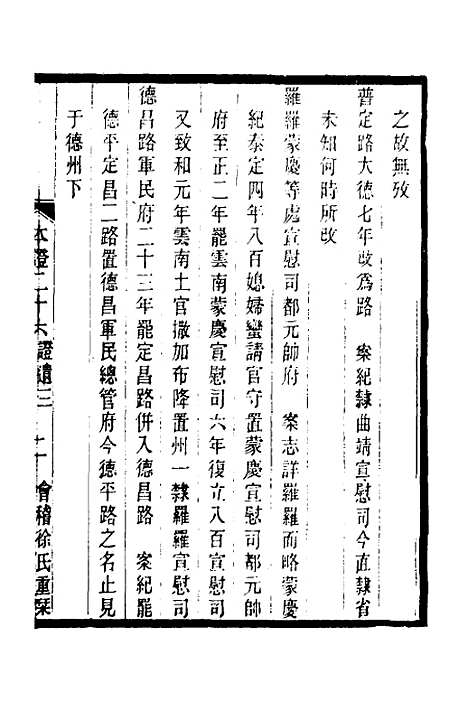 之故無攷
普定路大德七年改爲路　案紀隸曲靖宣慰司今直隸省
未知何時所改
羅羅蒙慶等處宣慰司都元帥府　案志詳羅羅而略蒙慶
紀泰定四年八百媳婦蠻請官守置蒙慶宣慰司都元帥
府至正二年罷雲南蒙慶宣慰司六年復立八百宣慰司
又致和元年雲南土官撒加布降置州一隸羅羅宣慰司
德昌路軍民府二十三年罷定昌路併入德昌路　案紀罷
德平定昌二路置德昌軍民總管府今德平路之名止見
于德州下
本證二十六　證遺三　十一　會稽徐氏重栞